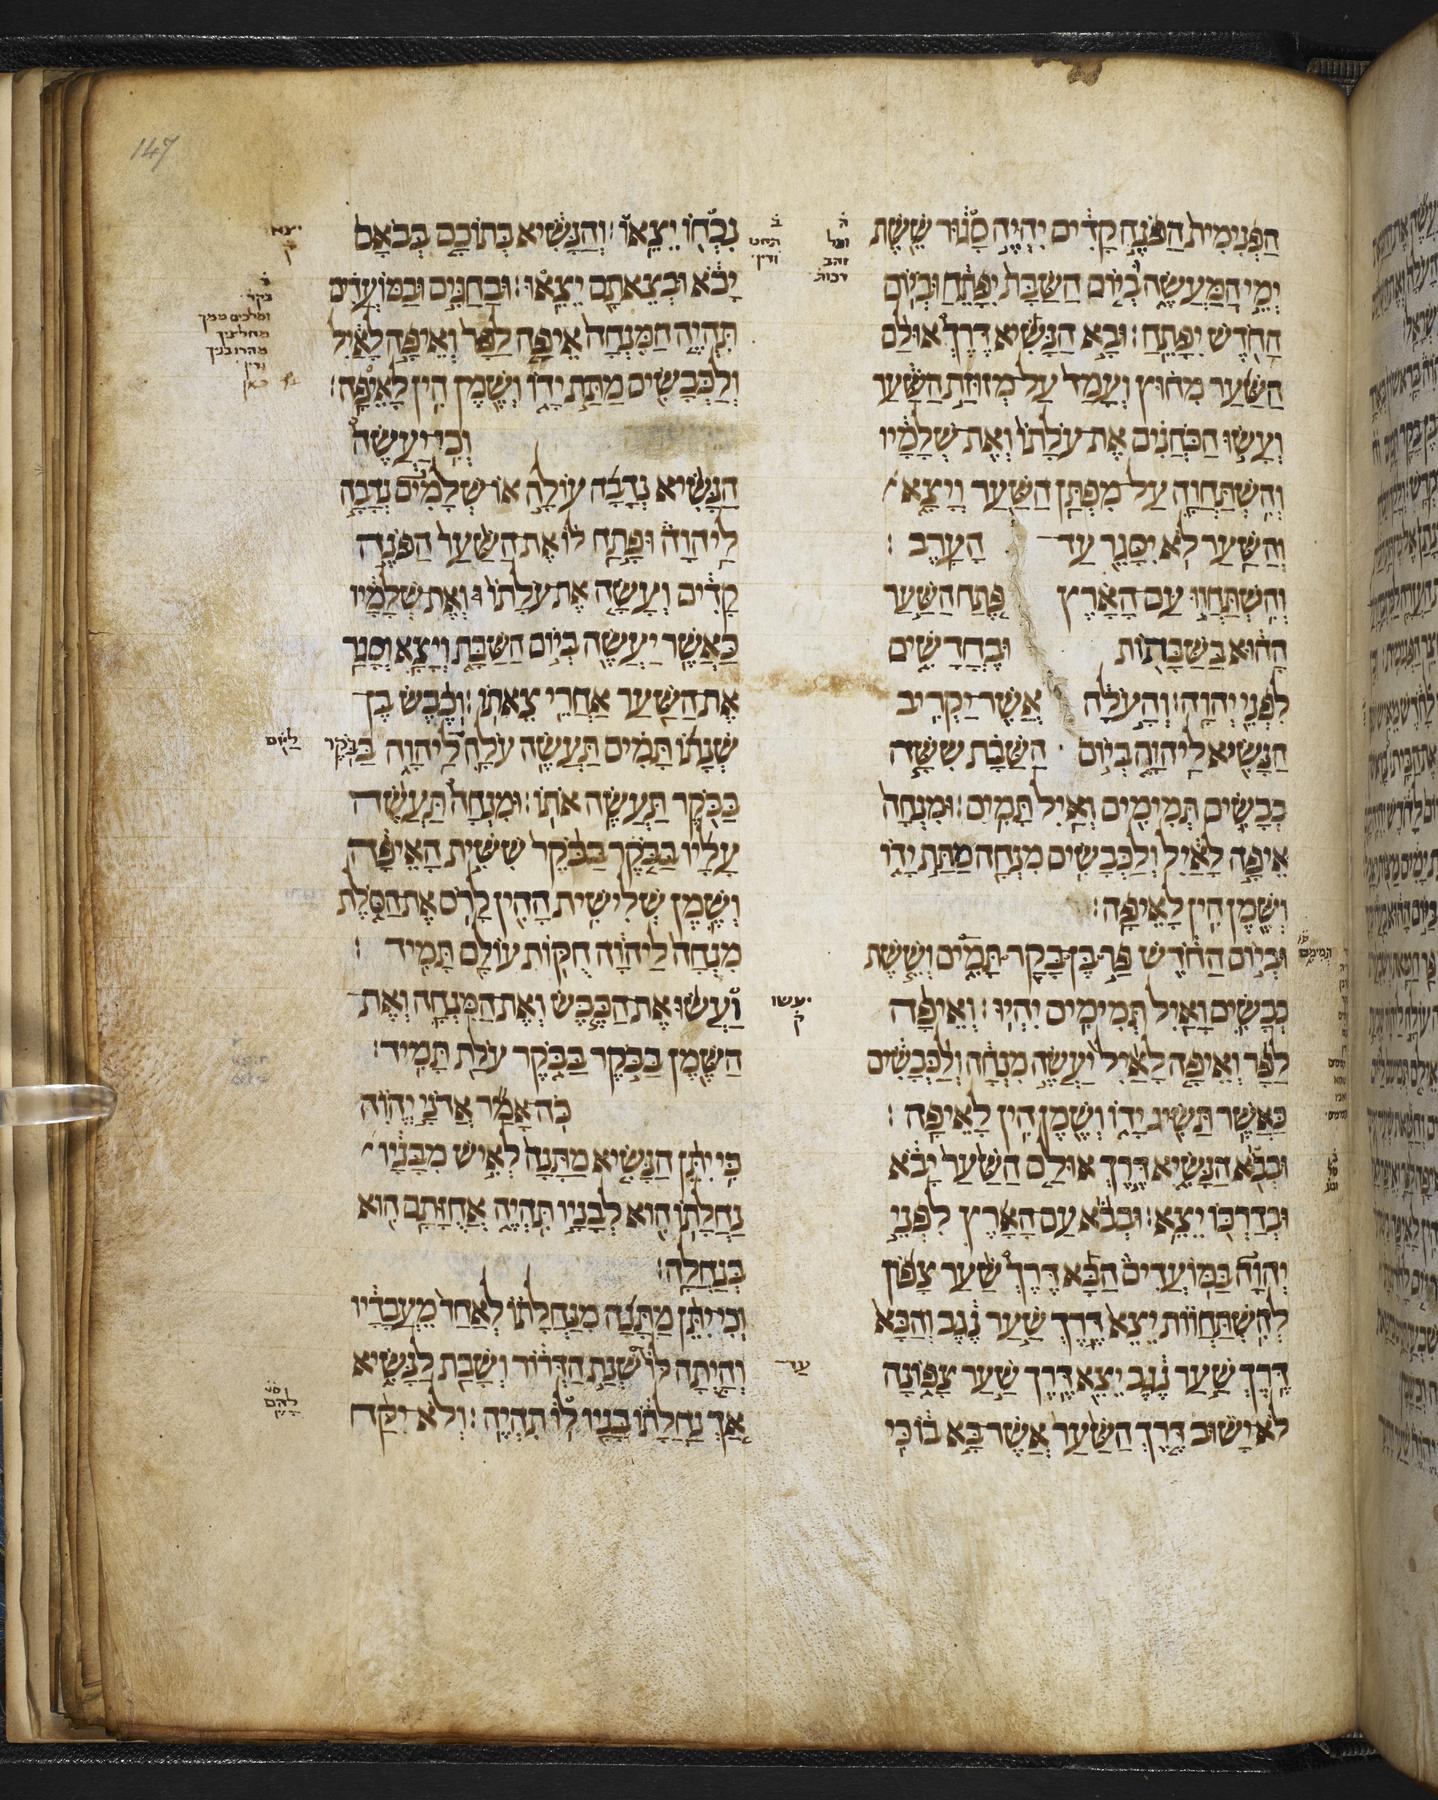 147
הפנימית הפנה קדים יהיה סגור ששת
ימי המעשה ביום השבת יפתח וביום
החדש יפתח: ובא הנשיא דרך אולם
השער מחוץ ועמד על מזוזת השער
ועשו הכהנים את עלתו ואת שלמיו
והשתחוה על מפתן השער ויצא
והשער לא יסגר עד הערב:
והשתחוו עם הארץ פתח השער
ההוא בשבתות ובחדשים
לפני יהוה: והעלה אשר יקריב
הנשיא ליהוה ביום השבת ששה
כבשים תמימים ואיל תמים: ומנחה
איפה לאיל ולכבשים מנחה מתת ידו
ושמן הין לאיפה:
וביום החדש פר בן בקר תמים וששת
כבשים ואיל תמימים יהיו: ואיפה
לפר ואיפה לאיל יעשה מנחה ולכבשים
כאשר תשיג ידו ושמן הין לאיפה:
ובבא הנשיא דרך אולם השער יבא
ובדרכו יצא: ובבא עם הארץ לפני
יהוה במועדים הבא דרך שער צפון
להשתחות יצא דרך שער נגב והבא
דרך שער נגב יצא דרך שער צפונה
לא ישוב דרך השער אשר בא בו כי
נכחו יצאו: והנשיא בתוכם בבאם
יבא ובצאתם יצאו: ובחגים ובמועדים
תהיה המנחה איפה לפר ואיפה לאיל
ולכבשים מתת ידו ושמן הין לאיפה:
וכי יעשה
הנשיא נדבה עולה או שלמים נדבה
ליהוה ופתח לו את השער הפנה
קדים ועשה את עלתו ואת שלמיו
כאשר יעשה ביום השבת ויצא וסגר
את השער אחרי צאתו: וכבש בן
שנתו תמים תעשה עלה ליהוה בבקר
בבקר תעשה אתו: ומנחה תעשה
עליו בבקר בבקר ששית האיפה
ושמן שלישית ההין לרס את הסלת
מנחה ליהוה חקות עולם תמיד:
ועשו את הכבש ואת המנחה ואת
השמן בבקר בבקר עלת תמיד:
כה אמר אדני יהוה
כי יתן הנשיא מתנה לאיש מבניו
נחלתו היא לבניו תהיה אחזתם היא
בנחלה:
וכי יתן מתנה מנחלתו לאחד מעבדיו
והיתה לו שנת הדרור ושבת לנשיא
אך נחלתו בניו לו תהיה: ולא יקח
יצא
ק
ליום
יעשו
ק
להם